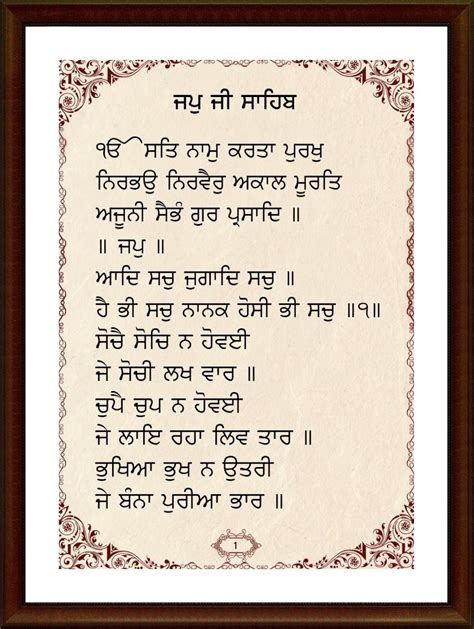 ਜਪੁ ਜੀ ਸਾਹਿਬ
ੴ ਸਤਿ ਨਾਮੁ ਕਰਤਾ ਪੁਰਖੁ
ਨਿਰਭਉ ਨਿਰਵੈਰੁ ਅਕਾਲ ਮੂਰਤਿ
ਅਜੂਨੀ ਸੈਭੰ ਗੁਰ ਪ੍ਰਸਾਦਿ ॥
॥ ਜਪੁ ॥
ਆਦਿ ਸਚੁ ਜੁਗਾਦਿ ਸਚੁ ॥
ਹੈ ਭੀ ਸਚੁ ਨਾਨਕ ਹੋਸੀ ਭੀ ਸਚੁ ॥੧॥
ਸੋਚੈ ਸੋਚਿ ਨ ਹੋਵਈ
ਜੇ ਸੋਚੀ ਲਖ ਵਾਰ ॥
ਚੁਪੈ ਚੁਪ ਨ ਹੋਵਈ
ਜੇ ਲਾਇ ਰਹਾ ਲਿਵ ਤਾਰ ॥
ਭੁਖਿਆ ਭੁਖ ਨ ਉਤਰੀ
ਜੇ ਬੰਨਾ ਪੁਰੀਆ ਭਾਰ ॥
1